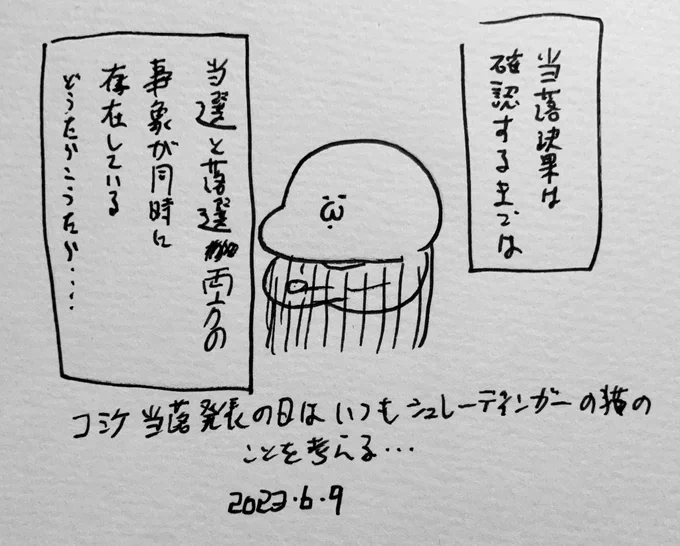 当落決果は
確認するまでは
当選と落選両方の
事象が同時に
存在している
どうたらこうたら・・・・
コミケ当落発表の日はいつもシュレーディンガーの猫の
ことを考える・・・
2023・6・9